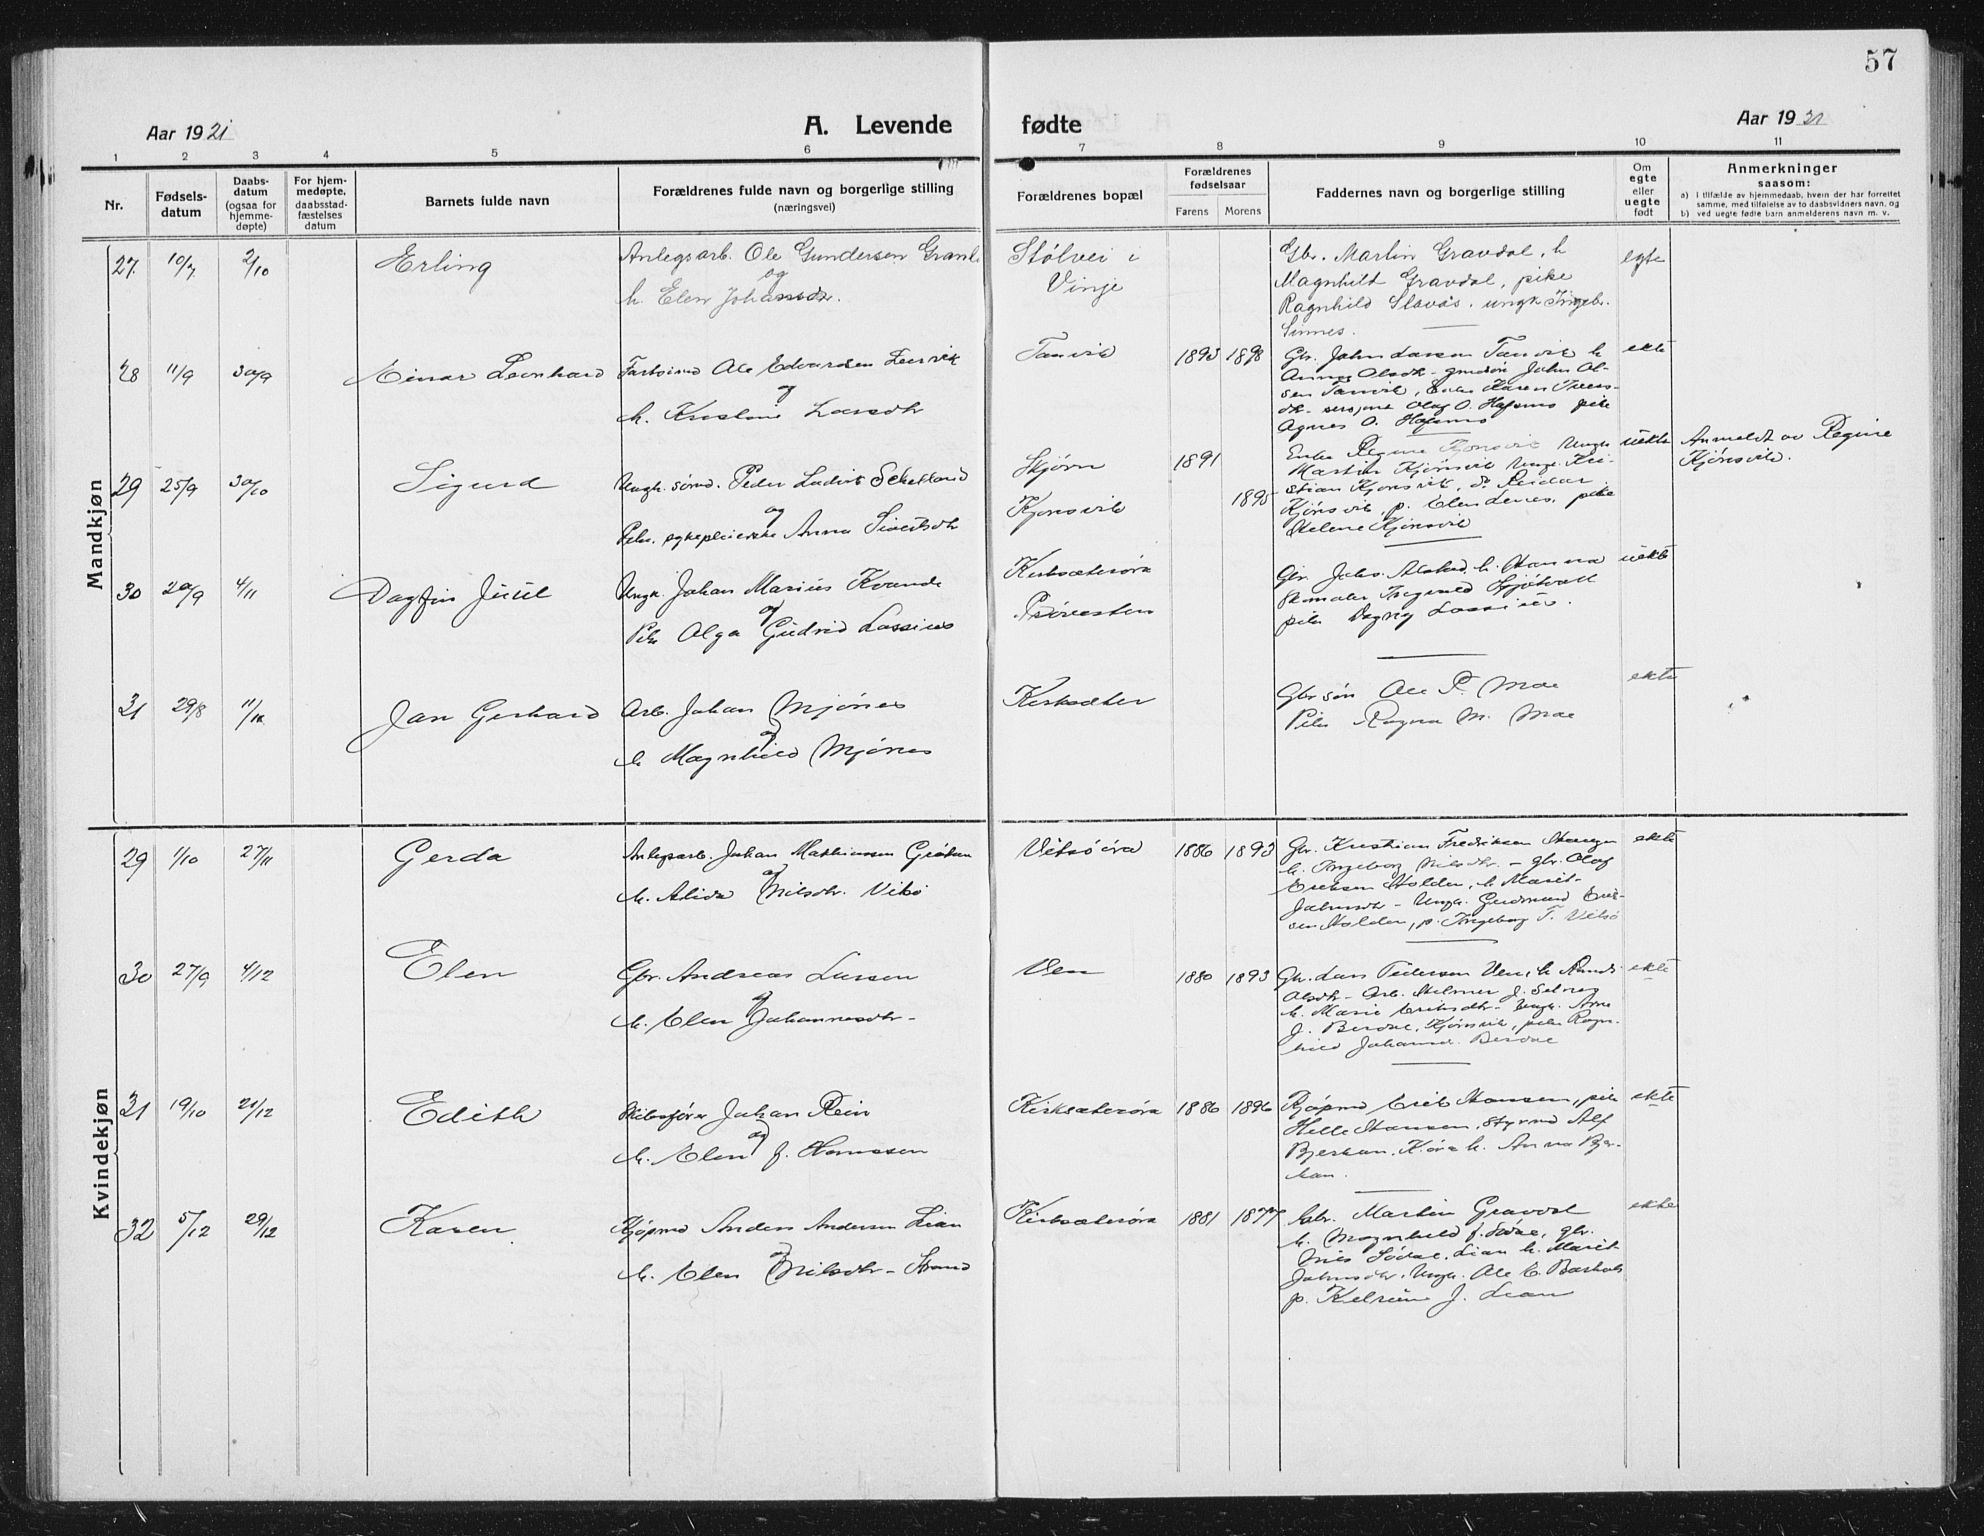 57
Aar 1921 A. Levende fødte Aar 1921
1 2 3 4 5 6 7 8 9 10 11
Nr.
Fødsels-
datum
Daabs-
datum
(ogsaa for
hjemme-
døpte)
For hjem-
medøpte,
daabsstad-
fæstelses
datum
Barnets fulde navn
Forældrenes fulde navn og borgerlige stilling
(næringsvei)
Forældrenes bopæl
Forældrenes
fødselsaar
Farens Morens
Faddernes navn og borgerlige stilling
Om
egte
eller
uegte
født
Anmerkninger
saasom:
a) i tilfælde av hjemmedaab, hvem der har forrettet
samme, med tilføielse av to daabsvidners navn, og
b) ved uegte fødte barn anmelderens navn m. v.
Mandkjøn
27. 10/7 2/10 Erling
Anlegsarb. Ole Gundersen
og
h. Elen Johansdr.
Stølvei i
Vinje
Gbr. Martin Gravdal, h.
Magnhild Gravdal, pike
Ragnhild Slavås, ungk. Ingebr.
Sinnes.
egte
28 11/9 30/9 Einar Leonhard
Ole Edvardsen Lervik
og
h. Kristine Larsdtr
Tanvik 1893 1898
Gbr. John Larsen Tanvik h.
Anne Olsdtr - John Ol-
sen Tanvik, Enke Karen
Olaf O. Hafsmo pike
Agnes O. Hafsmo
ekte
29 25/9 30/10 Sigurd
Ungk. Peder Ludvik
og
Pike, sykepleierske Anna Sivertsdtr
Skjørn 1891
Kjønsvik 1895
Enke Regine Kjønsvik Ungk.
Martin Kjønsvik Ungk. Kri-
stian Kjønsvik, do Reidar
Kjønsvik, p. Elen Lenes, pike
Helene Kjønsvik
uekte
Anmeldt av Regine
Kjønsvik.
30 20/9 4/11 Dagfin Juul
Ungk. Johan Marius Kvande
og
Pike Olga Gudrid Lossius
Kirksæterøra
Gbr. Johs. h. Hanna
pike Dagny Lossius.
uekte
31 29/8 11/12 Jan Gerhard
Arb. Johan Mjønes
og
h. Magnhild Mjønes
Kirksæter
Gbr søn Ole P. Moe
Pike Ragna M. Moe
ekte
Kvindekjøn
29 1/10 27/11 Gerda
Anlegsarb. Johan Mathiassen
og
h. Alida Nilsdtr. Vitsø
Vitsøøra 1886 1893
Gbr. Kristian Fredriksen
h. Ingeborg Nilsdtr. - gbr. Olaf
Eriksen Holden, h. Marit
Johnsdtr - Ungk. Gudmund Erik-
sen Holden, p. Ingeborg T. Vitsø
ekte
30 27/9 4/12 Elen
Gbr. Andreas Larsen
og
h. Elen Johannesdtr -
Ven 1880 1893
Gbr. Lars Pedersen Ven, h. Randi
Olsdtr - Arb. Hilmer J. Selnes
h. Marie Eriksdtr - Ungk. Arne
J. Berdal, Kjønsvik, pike Ragn-
hild Johansd. Berdal
ekte
31 19/10 21/12 Edith
Skibsfører Johan Rein
og
h. Elen f. Hanssen
Kirksæterøra 1886 1896
Kjøpmd Erik Hansen, pike
Helle Hansen, Styrmd Alf
Bjerkan, h. Anna Bjer-
kan.
ekte
32 5/12 29/12 Karen
Kjøpmd Anders Andersen Lian
og
h. Elen Nilsdtr - Strand
Kirksæterøra 1881 1877
Gbr. Martin Gravdal
h. Magnhild f. Sødal, gbr.
Nils Sødal, Lian h. Marit
Johnsdtr, Ungk. Ole E.
p. J. Lian
ekte